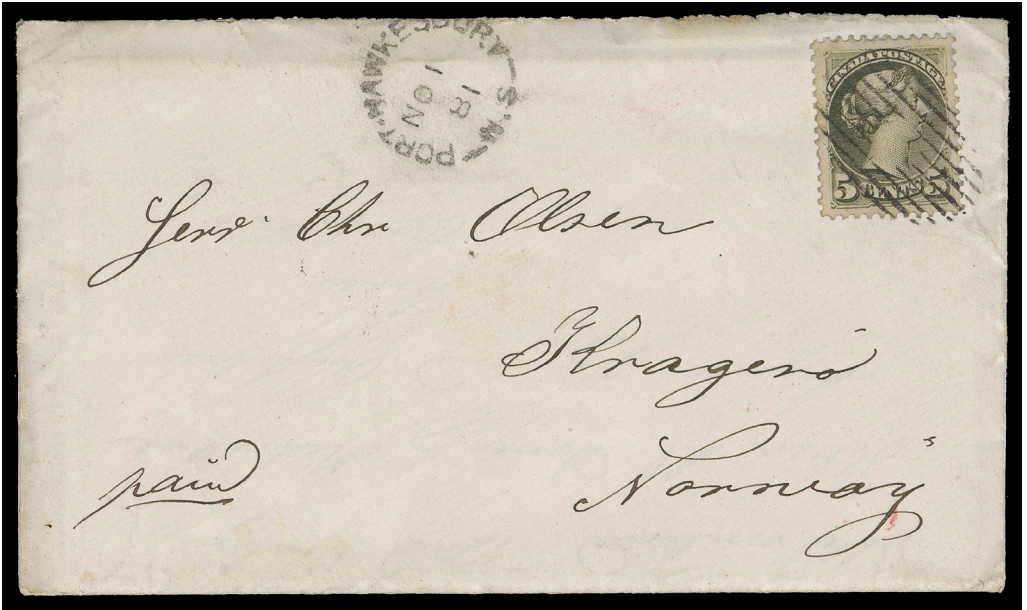 PORT-HAWKESBURY N.S
NO 1
81
CANADA POSTAGE
5 CENTS 5
Herr Chr Olsen
Kragerö
Norway
paid